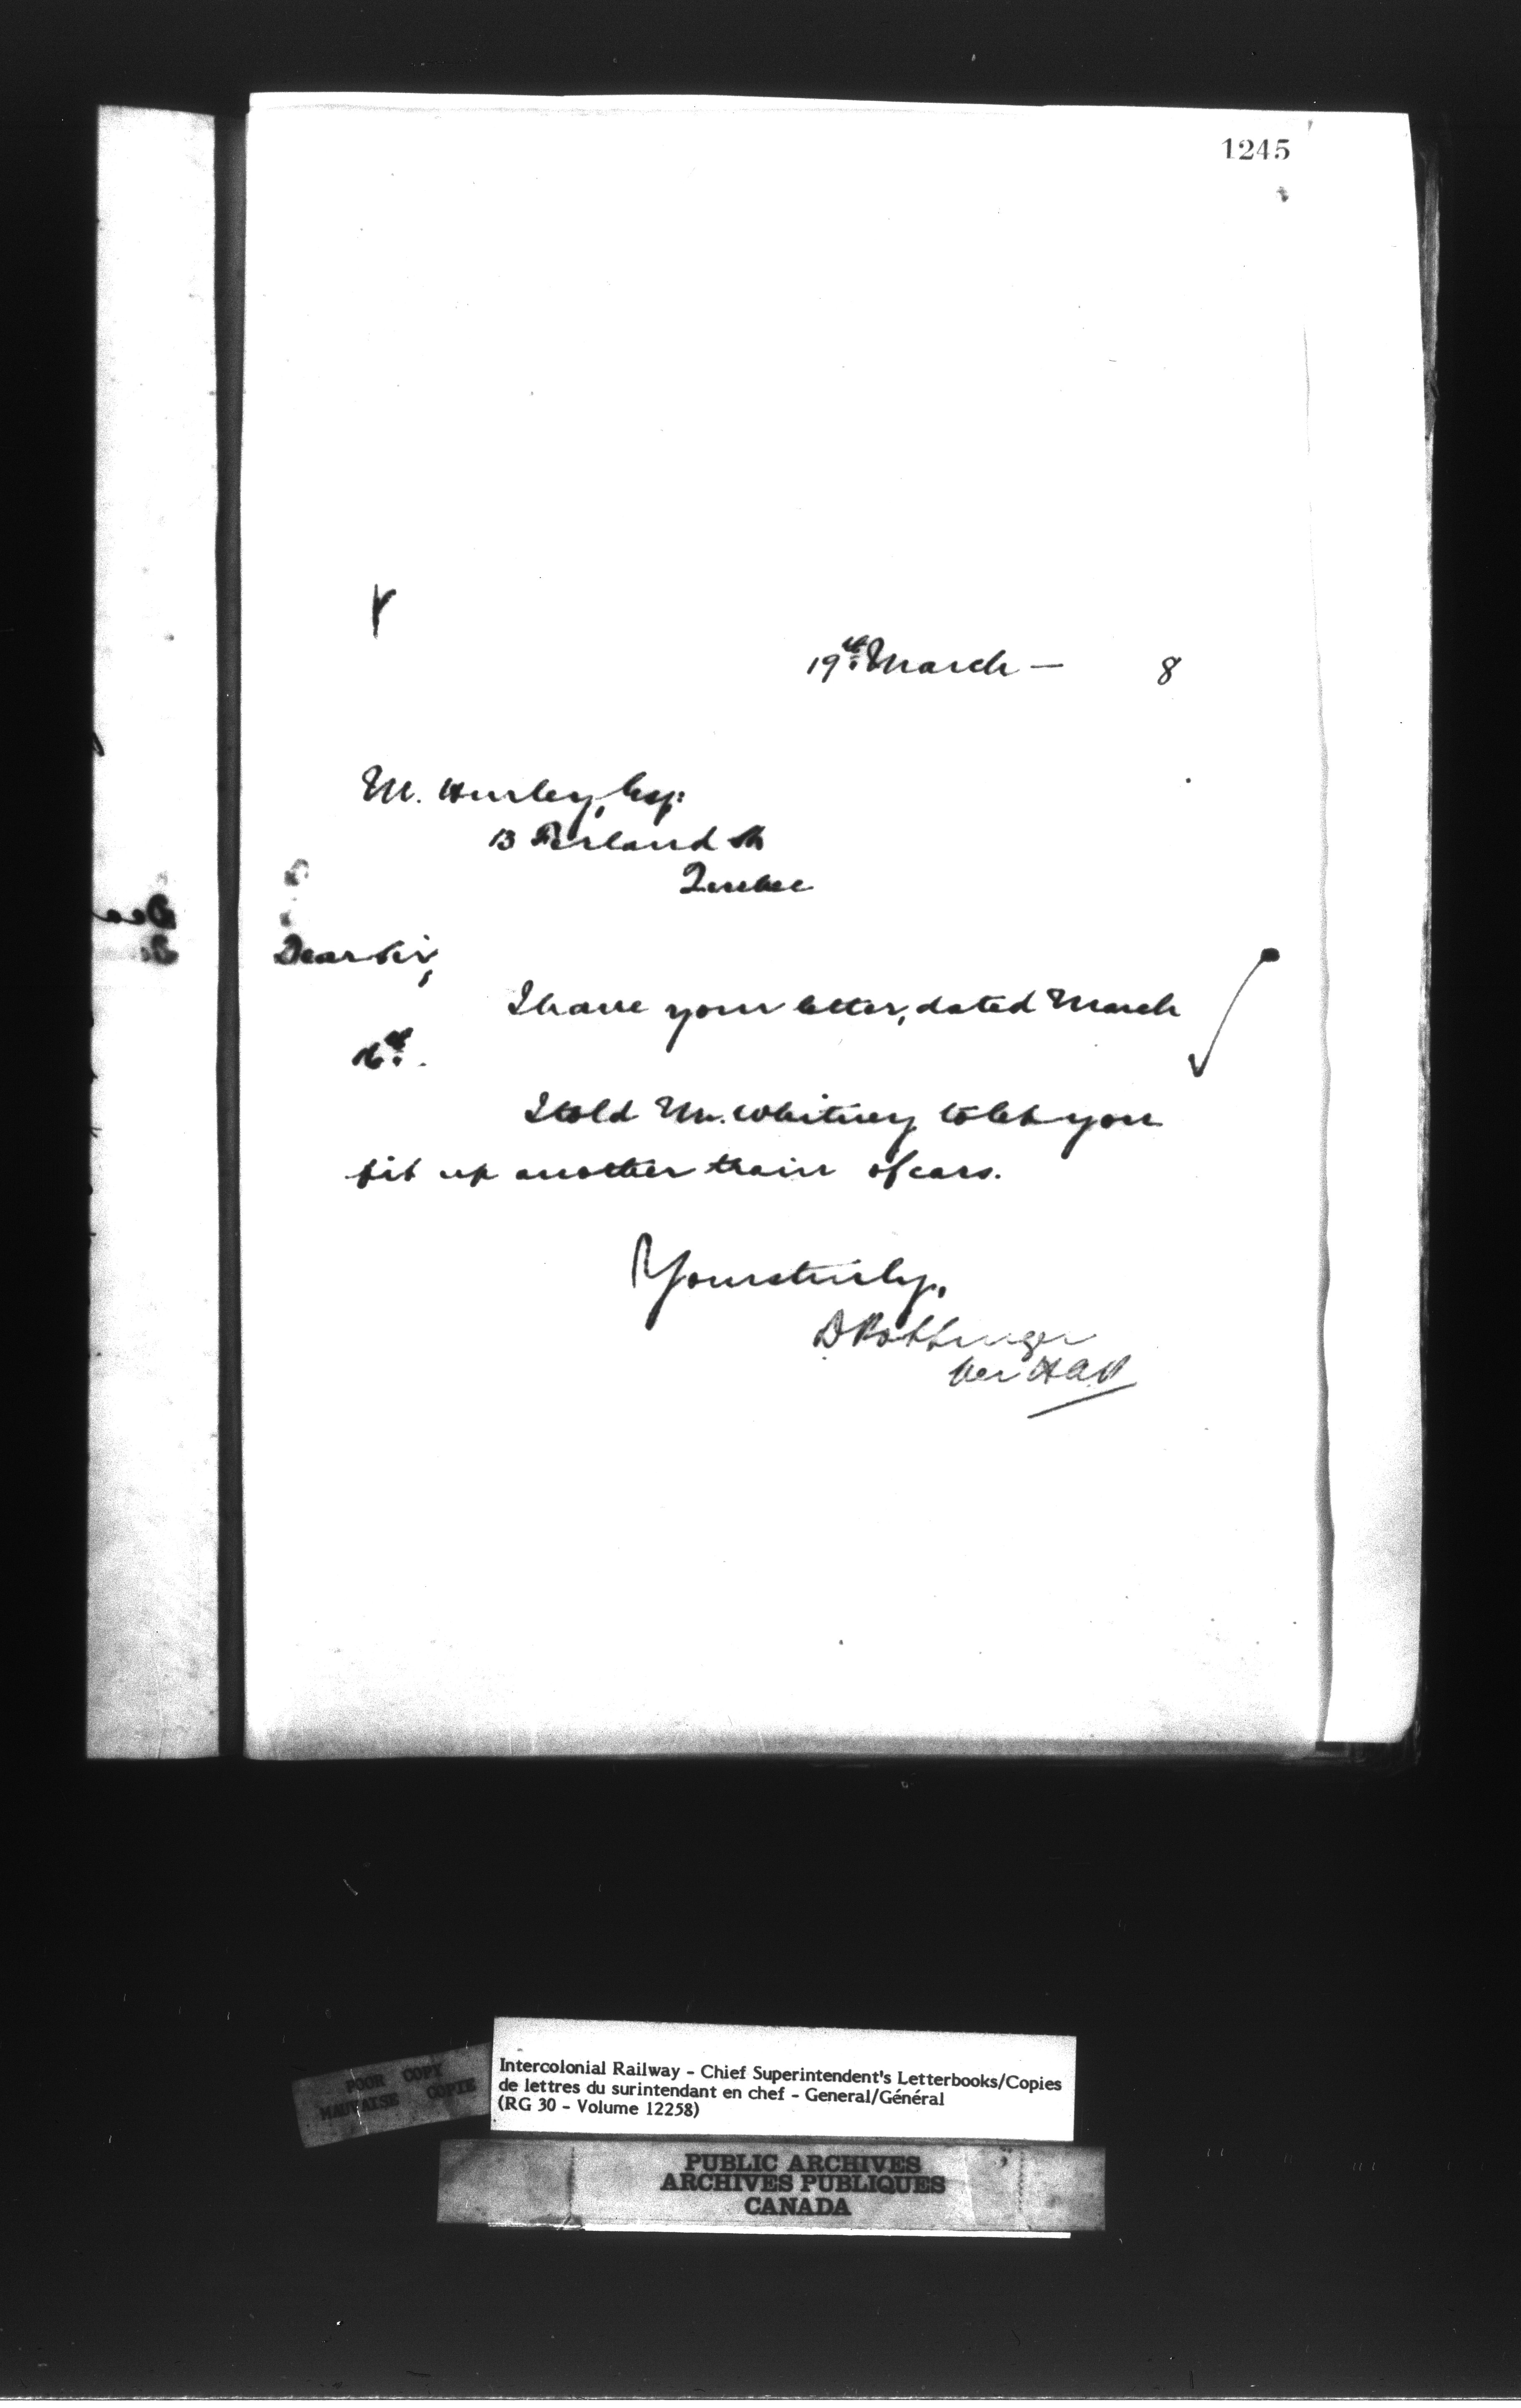 1245
19th March — 8
M. Hurley, Esq:
13 Ferland St
Quebec
Dear Sir,
I have your letter, dated March
16th.
I told Mr. Whitney to let you
fit up another train of cars.
Yours truly,
D Pottinger
per HAP
POOR COPY
MAUVAISE COPIE
Intercolonial Railway - Chief Superintendent's Letterbooks/Copies
de lettres du surintendant en chef - General/Général
(RG 30 - Volume 12258)
PUBLIC ARCHIVES
ARCHIVES PUBLIQUES
CANADA